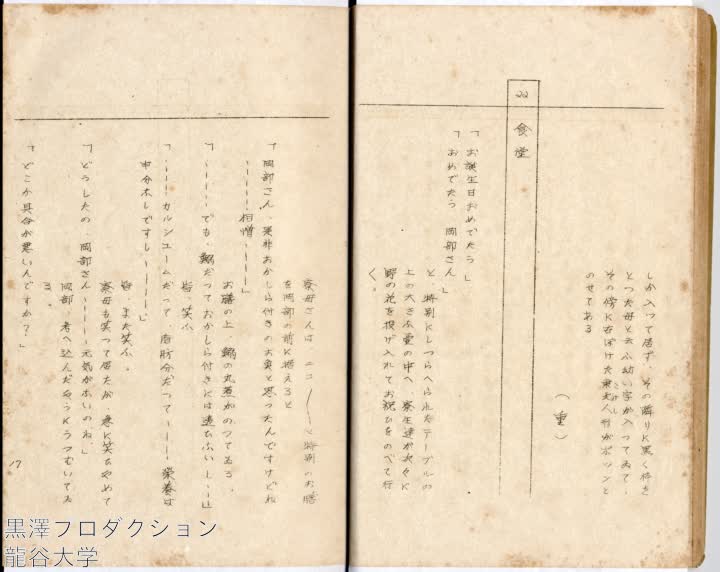 しか入つて居ず、その隣りに黒く枠を
とつた母と云ふ幼い字が入つてゐて、
その傍に古ぼけた東北人形がポツンと
のせてある
(重)
22 食堂
「お誕生日おめでたう」
「おめでたう 岡部さん」
と、特別にしつらへられたテーブルの
上の大きな壷の中へ、寮生達が次々に
野の花を投げ入れてお祝ひをのべて行
く。
寮母さんは ニコ〱と特別のお膳
を岡部の前に据えると
「岡部さん、是非おかしら付きのお魚と思つたんですけどね
————相憎————」
「————でも、鰯だつておかしら付きには違ひないし——」
お膳の上 鰯の丸煮がのつてゐる。
皆、笑ふ
「————カルシユームだつて、脂肪分だつて————栄養は
申分なしですし————」
皆、また笑ふ。
寮母も笑つて居たが、急に笑ひやめて
「どうしたの、岡部さん————元気がないのね。」
岡部、考へ込んだやうにうつむいてゐ
る。
「どこか具合が悪いんですか?」
17
黒澤プロダクション
龍谷大学